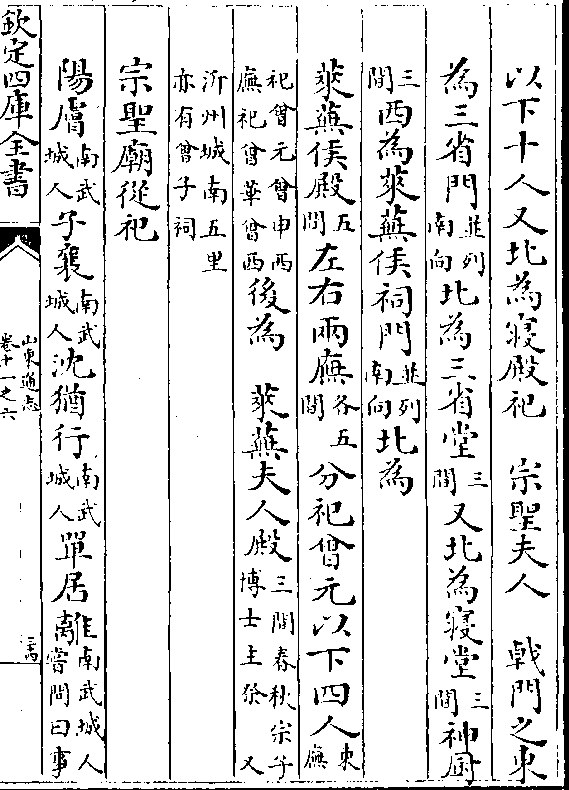 以下十人又北為寢殿祀　宗聖夫人　戟門之東
為三省門並列南向北為三省堂三間又北為寢堂三間神厨
三間西為萊蕪侯祠門並列南向北為
萊蕪侯殿五間左右兩廡各五間分祀曾元以下四人東廡
祀曾元曾申西廡祀曾華曾西後為　萊蕪夫人殿三間春秋宗子博士主祭　又
沂州城南五里亦有曾子祠
宗聖廟從祀
陽膚南武城人子襄南武城人沈猶行南武城人單居離南武城人嘗問曰事
欽定四庫全書
山東通志
卷十一之六